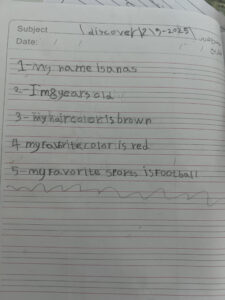 Subject discover 2\9-2025
Date: / /
1-my name isanas
2-I'm8years old
3-myhaircolorisbrown
4 myfavoritecolor.is red
5-myFavorite sports isFootball